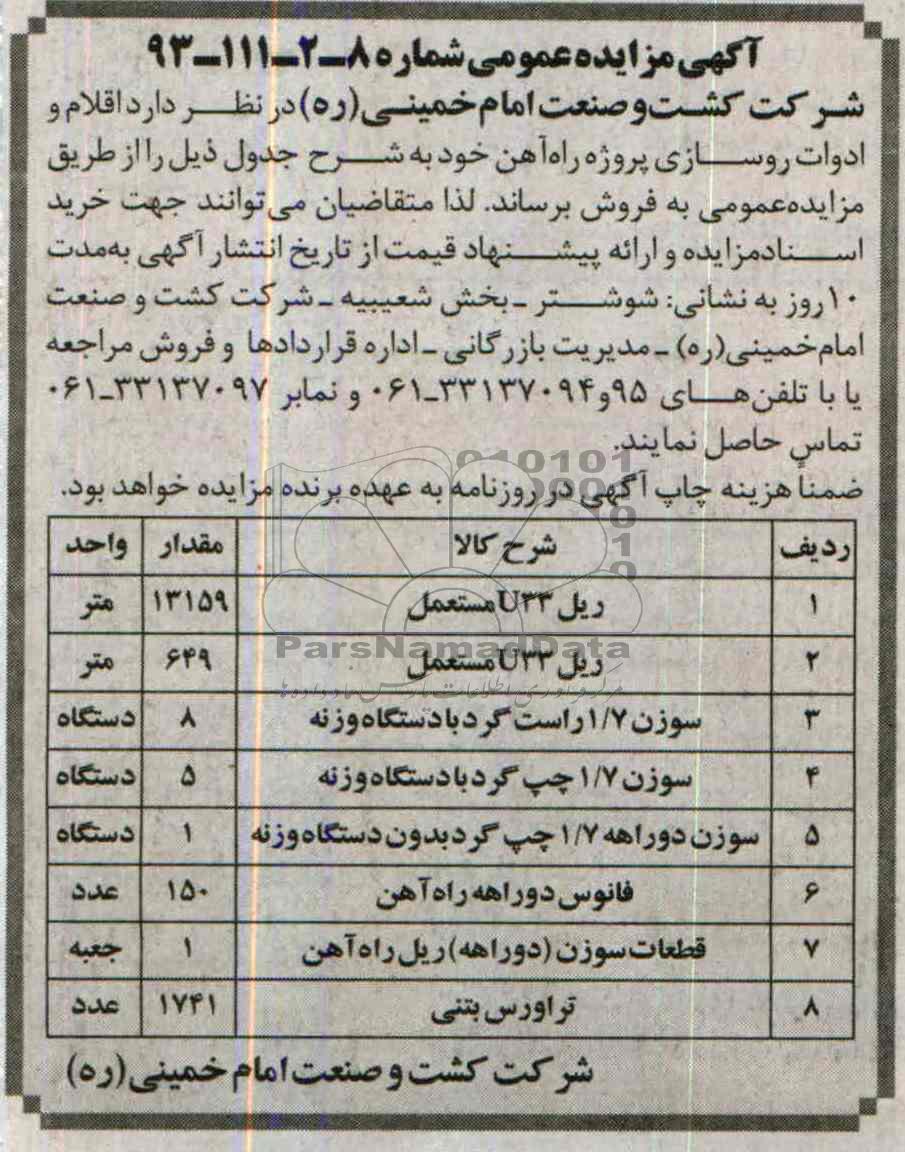 آگهی مزایده عمومی شماره ۸-۲-۱۱۱-۹۳
شرکت کشت و صنعت امام خمینی (ره) در نظر دارد اقلام و
ادوات روسازی پروژه راه‌آهن خود به شرح جدول ذیل را از طریق
مزایده عمومی به فروش برساند. لذا متقاضیان می‌توانند جهت خرید
اسناد مزایده و ارائه پیشنهاد قیمت از تاریخ انتشار آگهی به‌مدت
۱۰ روز به نشانی: شوشتر - بخش شعیبیه - شرکت کشت و صنعت
امام خمینی(ره) - مدیریت بازرگانی - اداره قراردادها و فروش مراجعه
یا با تلفن‌های ۹۵ و ۳۳۱۳۷۰۹۴-۰۶۱ و نمابر ۳۳۱۳۷۰۹۷-۰۶۱
تماس حاصل نمایند.
ضمناً هزینه چاپ آگهی در روزنامه به عهده برنده مزایده خواهد بود.
ردیف شرح کالا مقدار واحد
۱ ریل U۳۳ مستعمل ۱۳۱۵۹ متر
۲ ریل U۳۳ مستعمل ۶۴۹ متر
۳ سوزن ۱/۷ راست گرد با دستگاه وزنه ۸ دستگاه
۴ سوزن ۱/۷ چپ گرد با دستگاه وزنه ۵ دستگاه
۵ سوزن دوراهه ۱/۷ چپ گرد بدون دستگاه وزنه ۱ دستگاه
۶ فانوس دوراهه راه آهن ۱۵۰ عدد
۷ قطعات سوزن (دوراهه) ریل راه آهن ۱ جعبه
۸ تراورس بتنی ۱۷۴۱ عدد
شرکت کشت و صنعت امام خمینی (ره)
ParsNamadData